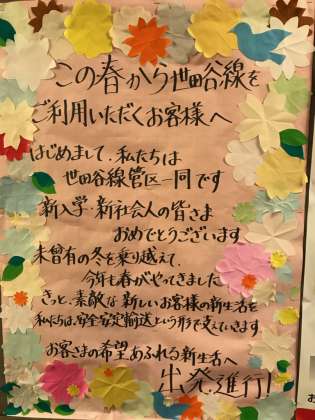 この春から世田谷線を
ご利用いただくお客様へ
はじめまして、私たちは
世田谷線管区一同です
新入学・新社会人の皆さま
おめでとうございます
未曽有の冬を乗り越えて、
今年も春がやってきました
きっと、素敵な新しいお客様の新生活を
私たちは、安全安定輸送という形で支えていきます
お客さまの希望あふれる新生活へ
出発進行!